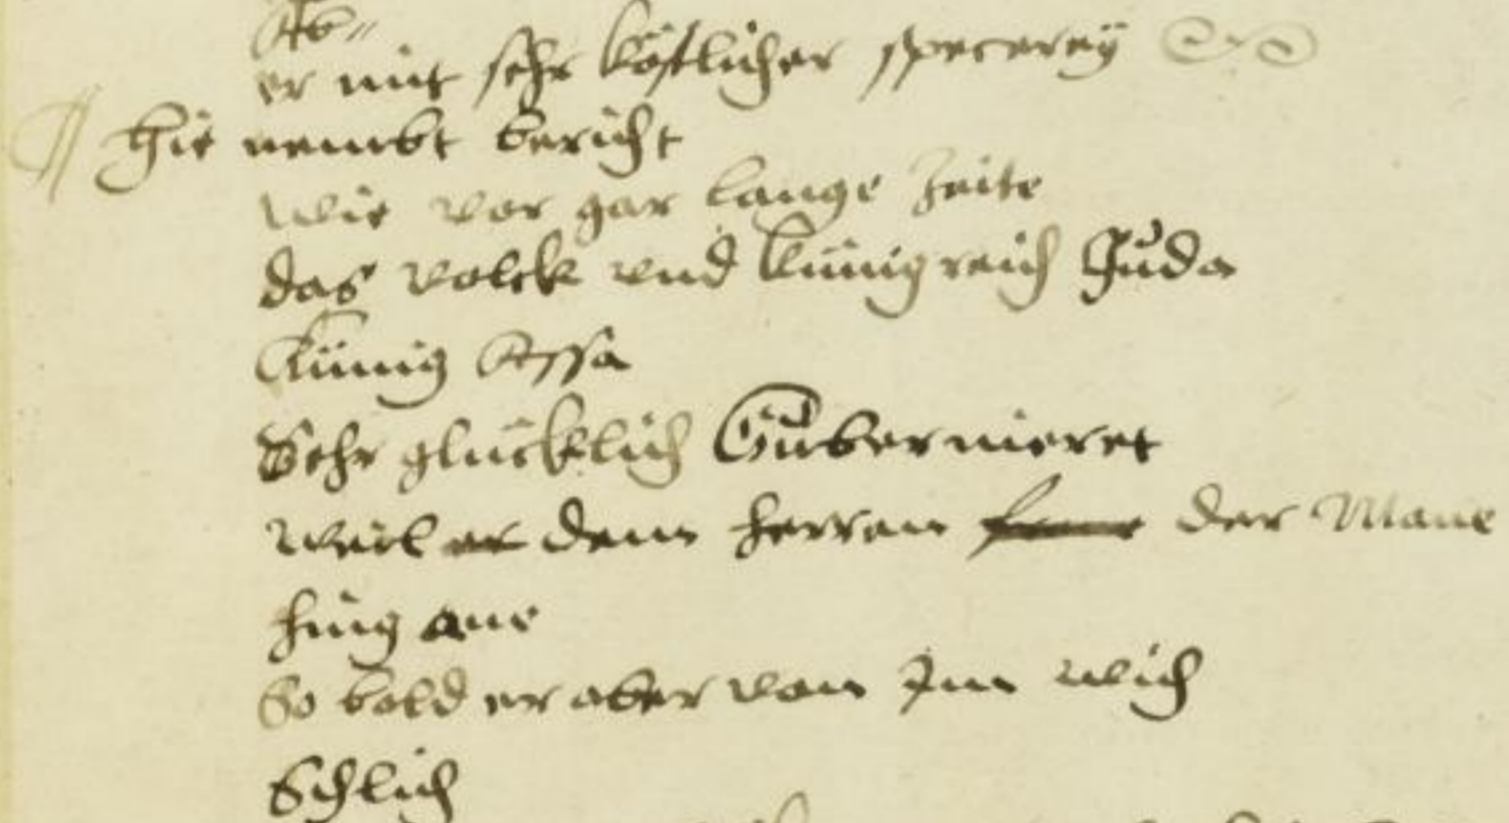 er mit sehr köstlicher specereÿ
Hie nembt bericht
wie vor gar lange Zeite
das volck vnd künigreich Juda
Künig Assa
Sehr glücklich Gubernieret
weil er dem herren der Mane
hing ane
So bald er aber von Im wich
Schlich